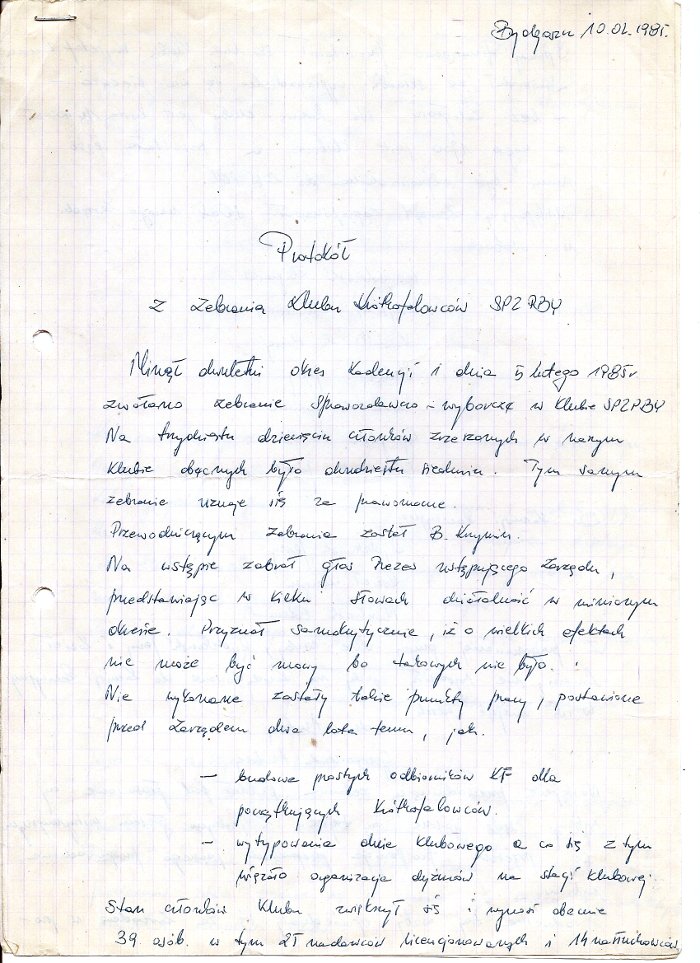 Bydgoszcz 10.02.1985r.
Protokół
z zebrania Klubu Krótkofalowców SP2PBY
Minął dwuletni okres kadencji i dnia 5 lutego 1985r
zwołano zebranie sprawozdawczo-wyborcze w klubie SP2PBY
Na trzydziestu dziewięciu członków zrzeszonych w naszym
klubie obecnych było dwudziestu siedmiu. Tym samym
zebranie uznaje się za prawomocne.
Przewodniczącym zebrania został B.
Na wstępie zabrał głos Prezes ustępującego zarządu,
przedstawiając w kilku słowach działalność w minionym
okresie. Przyznał samokrytycznie, iż o wielkich efektach
nie może być mowy bo takowych nie było.
Nie wykonane zostały takie punkty pracy, postawione
przed Zarządem dwa lata temu, jak.
- budowa prostych odbiorników KF dla
początkujących krótkofalowców.
- wytypowania dnia klubowego a co się z tym
wiązało organizacja dyżurów na stacji klubowej.
Stan członków Klubu zwiększył się i wynosi obecnie
39 osób. w tym 25 nadawców licencjonowanych i 14 nasłuchowców